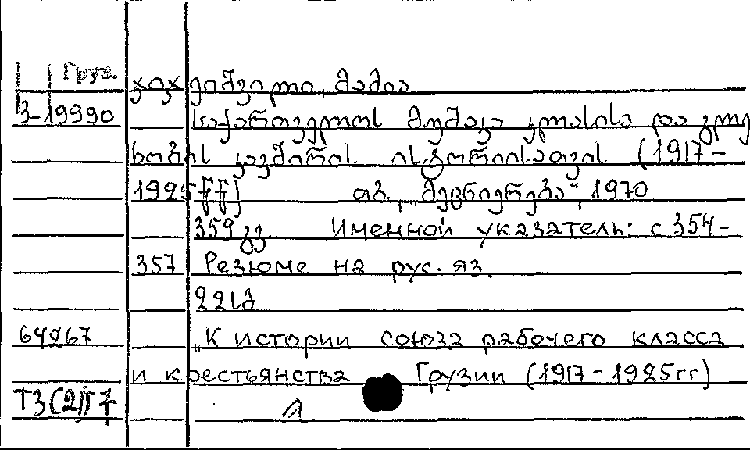 Груз.
3-19990
საქართველოს მუშათა კლასისა და გლე
ხობის კავშირის ისტორიისათვის (1917-
1925 წწ) თბ „მეცნიერება", 1970
359 გვ Именной указатель: с 354-
357 Резюме на рус. яз.
64267 „К истории союза рабочего класса
и крестьянства Грузии (1917-1925гг)
Т3(2)Г7 Л